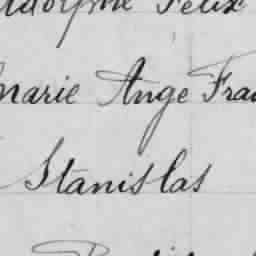 Adolphe Felix
Marie Ange Fran
Stanislas